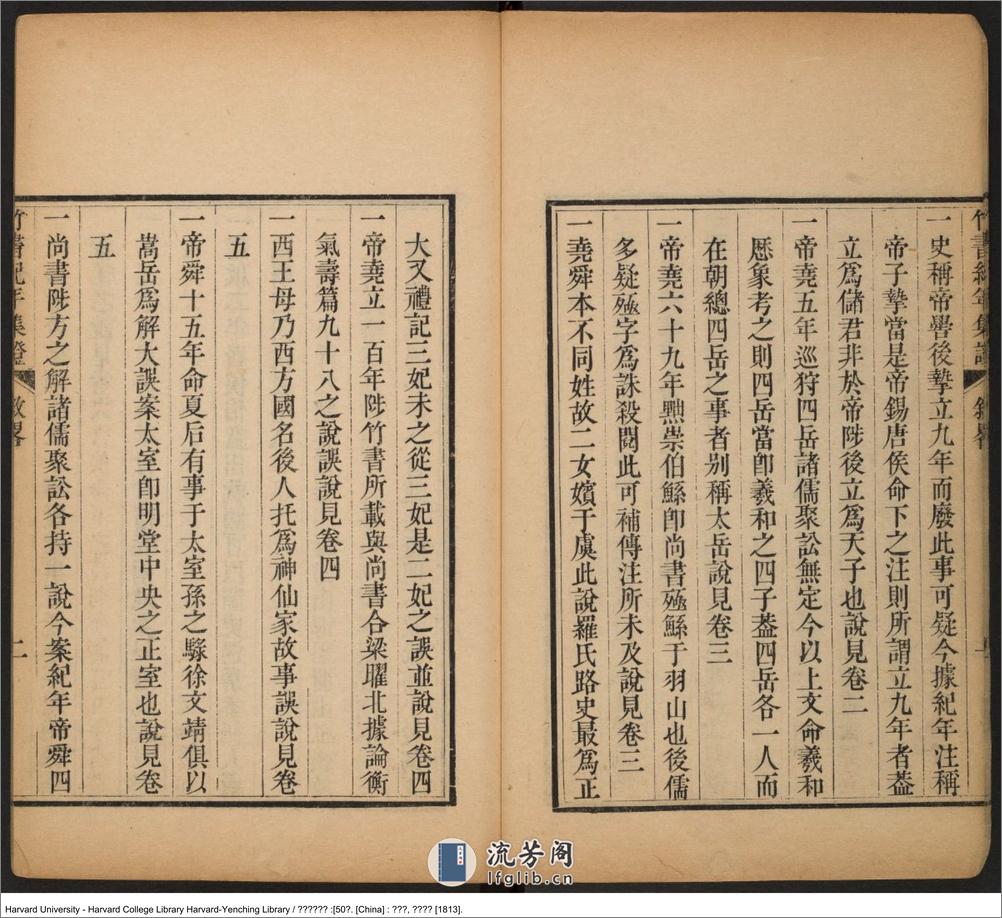 一史稱帝嚳後摯立九年而廢此事可疑今據紀年注稱
帝子摯當是帝錫唐侯命下之注則所謂立九年者葢
立爲儲君非於帝陟後立爲天子也說見卷二
一帝堯五年巡狩四岳諸儒聚訟無定今以上文命羲和
厯象考之則四岳當卽羲和之四子葢四岳各一人而
在朝總四岳之事者别稱太岳說見卷三
一帝堯六十九年黜崇伯鯀卽尚書殛鯀于羽山也後儒
多疑殛字爲誅殺閱此可補傳注所未及說見卷三
一堯舜本不同姓故二女嬪于虞此說羅氏路史最爲正
大又禮記三妃未之從三妃是二妃之誤並說見卷四
一帝堯立一百年陟竹書所載與尚書合梁曜北據論衡
氣壽篇九十八之說誤說見卷四
一西王母乃西方國名後人托爲神仙家故事誤說見卷
五
一帝舜十五年命夏后有事于太室孫之騄徐文靖俱以
嵩岳爲解大誤案太室卽明堂中央之正室也說見卷
五
一尚書陟方之解諸儒聚訟各持一說今案紀年帝舜四
竹書紀年集證
敘畧
二
流芳阁
lfglib.cn
Harvard University - Harvard College Library Harvard-Yenching Library / ?????? :[50?. [China] : ???, ???? [1813].